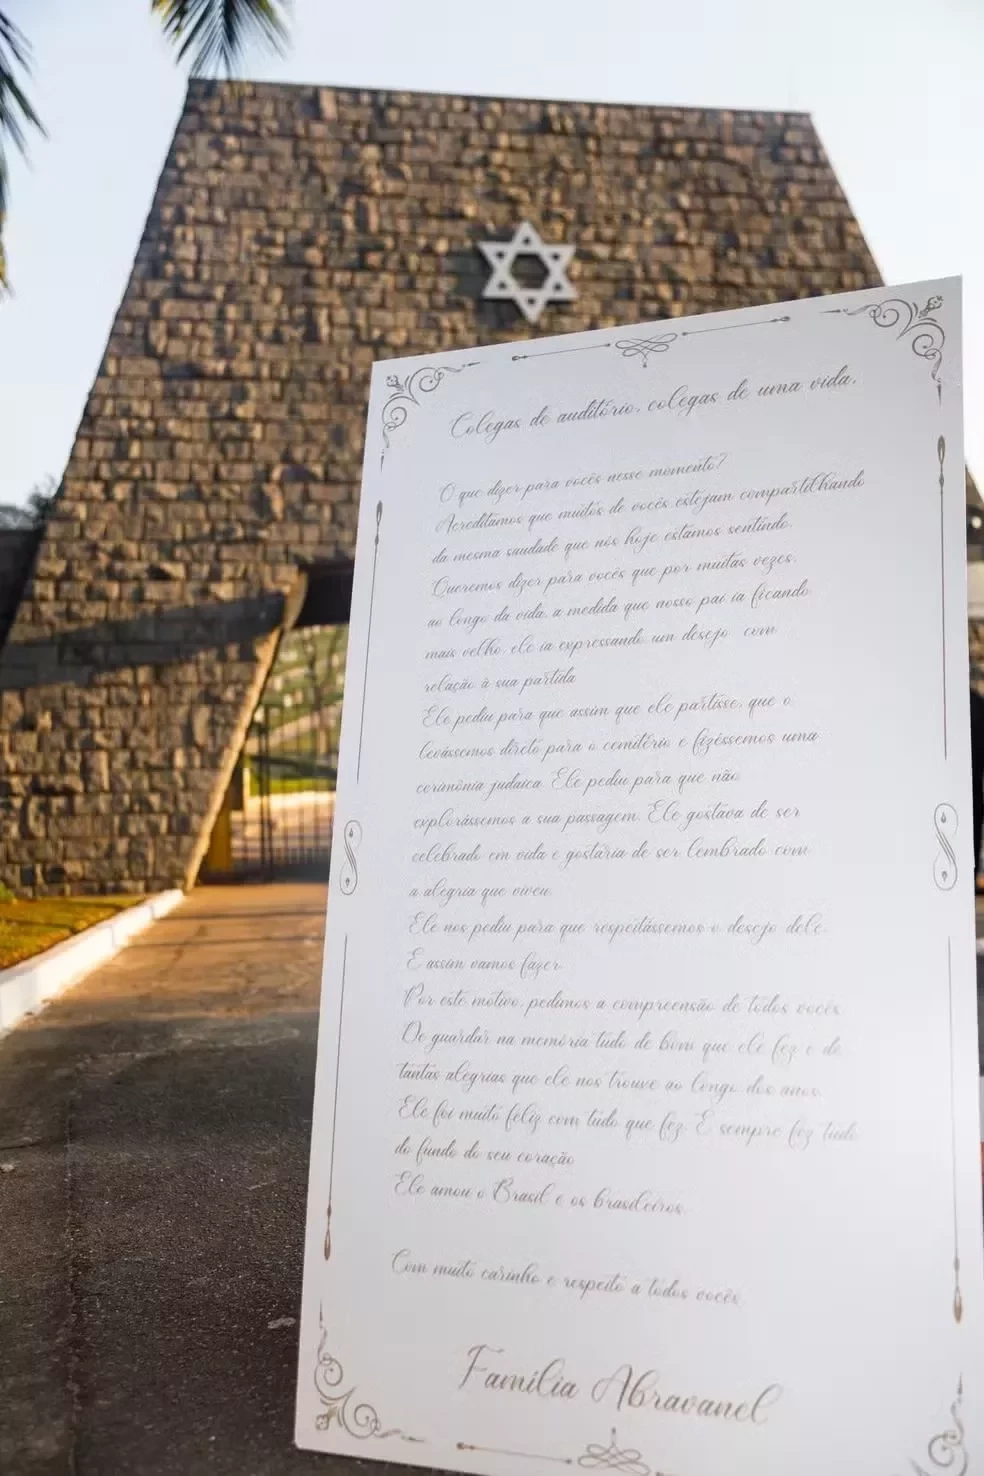 Colegas de auditório, colegas de uma vida,
O que dizer para vocês nesse momento?
Acreditamos que muitos de vocês estejam compartilhando
da mesma saudade que nós hoje estamos sentindo.
Queremos dizer para vocês que por muitas vezes,
ao longo da vida, a medida que nosso pai ia ficando
mais velho, ele ia expressando um desejo com
relação à sua partida
Ele pediu para que assim que ele partisse, que o
levássemos direto para o cemitério e fizéssemos uma
cerimônia judaica. Ele pediu para que não
explorássemos a sua passagem. Ele gostava de ser
celebrado em vida e gostaria de ser lembrado com
a alegria que viveu.
Ele nos pediu para que respeitássemos o desejo dele.
E assim vamos fazer.
Por este motivo, pedimos a compreensão de todos vocês.
De guardar na memória tudo de bom que ele fez e de
tantas alegrias que ele nos trouxe ao longo dos anos.
Ele foi muito feliz com tudo que fez. E sempre fez tudo
do fundo do seu coração
Ele amou o Brasil e os brasileiros.
Com muito carinho e respeito a todos vocês
Família Abravanel